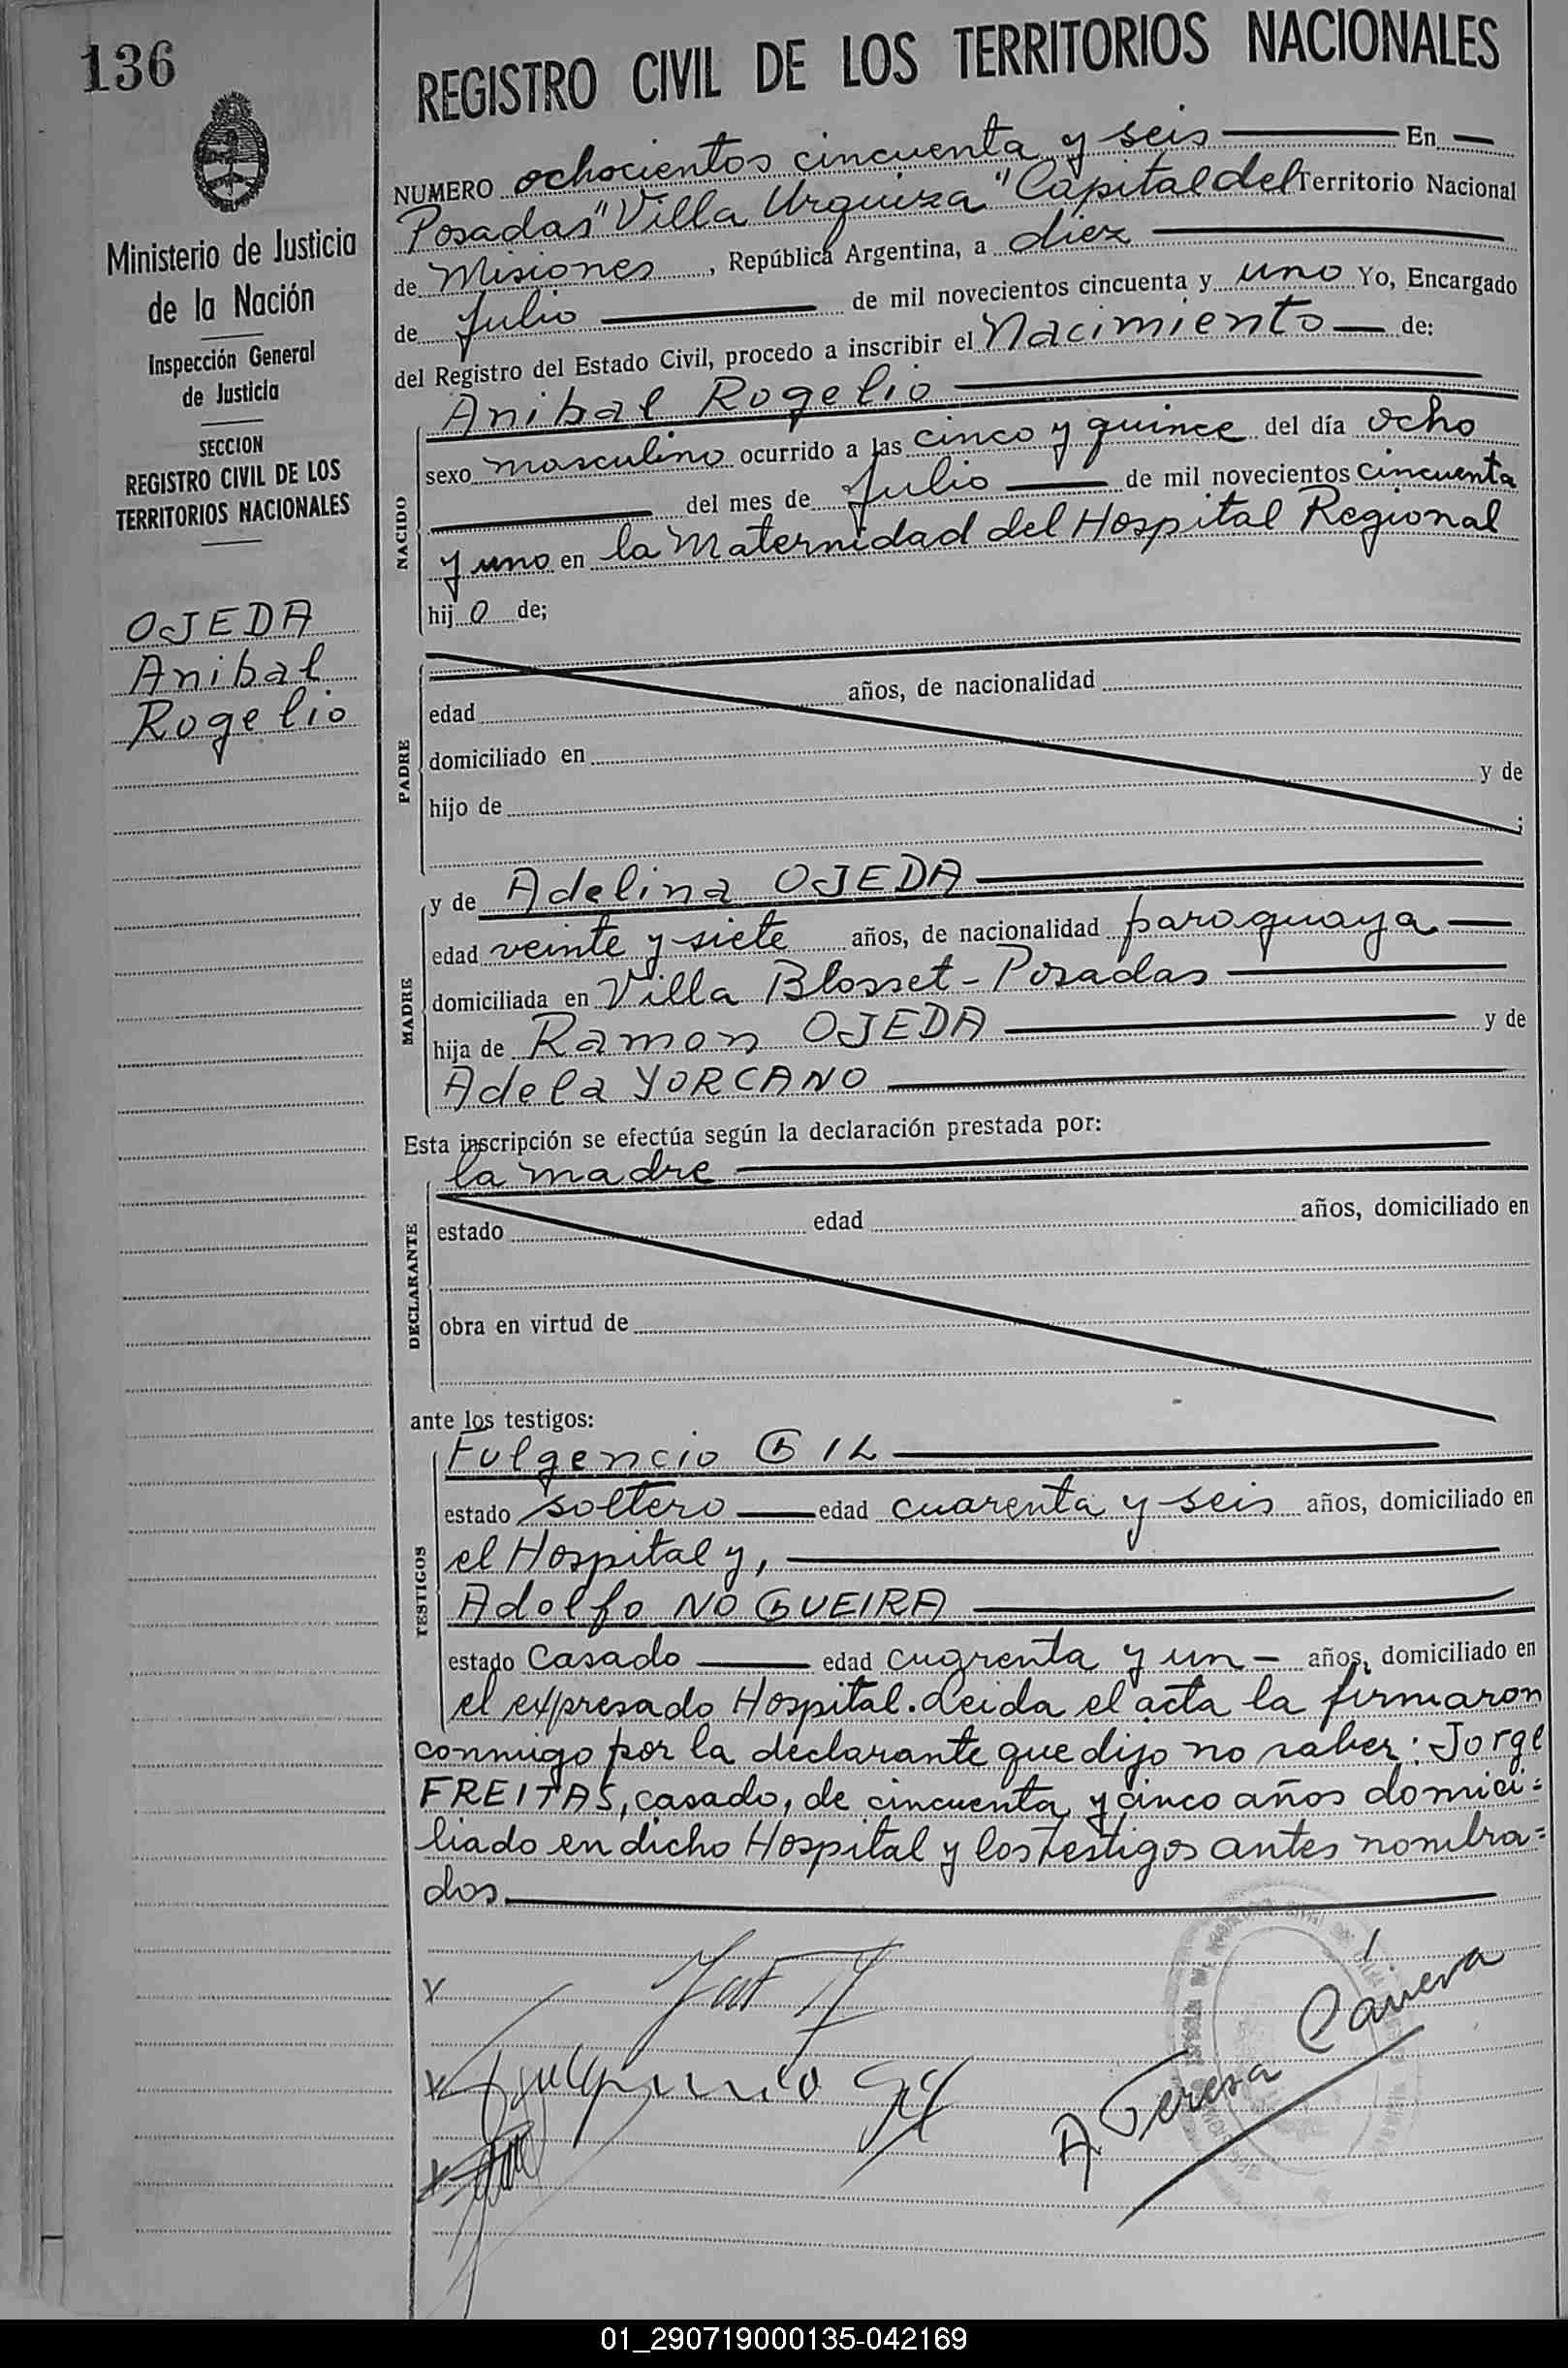 136
Ministerio de Justicia
de la Nación
Inspección General
de Justicia
SECCION
REGISTRO CIVIL DE LOS
TERRITORIOS NACIONALES
OJEDA
Anibal
Rogelio
REGISTRO CIVIL DE LOS TERRITORIOS NACIONALES
NUMERO ochocientos cincuenta y seis En
Posadas "Villa Urquiza" Capital del Territorio Nacional
de Misiones, República Argentina, a diez
de Julio de mil novecientos cincuenta y uno Yo, Encargado
del Registro del Estado Civil, procedo a inscribir el Nacimiento de:
NACIDO
Anibal Rogelio
sexo masculino ocurrido a las cinco y quince del día ocho
del mes de Julio de mil novecientos cincuenta
y uno en la Maternidad del Hospital Regional
hijo de;
PADRE
edad años, de nacionalidad
domiciliado en
hijo de y de
;
MADRE
y de Adelina OJEDA
edad veinte y siete años, de nacionalidad paraguaya
domiciliada en Villa Blosset - Posadas
hija de Ramon OJEDA y de
Adela YORCANO
Esta inscripción se efectúa según la declaración prestada por:
la madre
DECLARANTE
estado edad años, domiciliado en
obra en virtud de
ante los testigos:
TESTIGOS
Fulgencio GIL
estado soltero edad cuarenta y seis años, domiciliado en
el Hospital y,
Adolfo NOGUEIRA
estado casado edad cuarenta y un - años, domiciliado en
el expresado Hospital. Leida el acta la firmaron
conmigo por la declarante que dijo no saber: Jorge
FREITAS, casado, de cincuenta y cinco años domici=
liado en dicho Hospital y los testigos antes nombra=
dos.
x
x Fulgencio Gil
x
A. Teresa
01_290719000135-042169